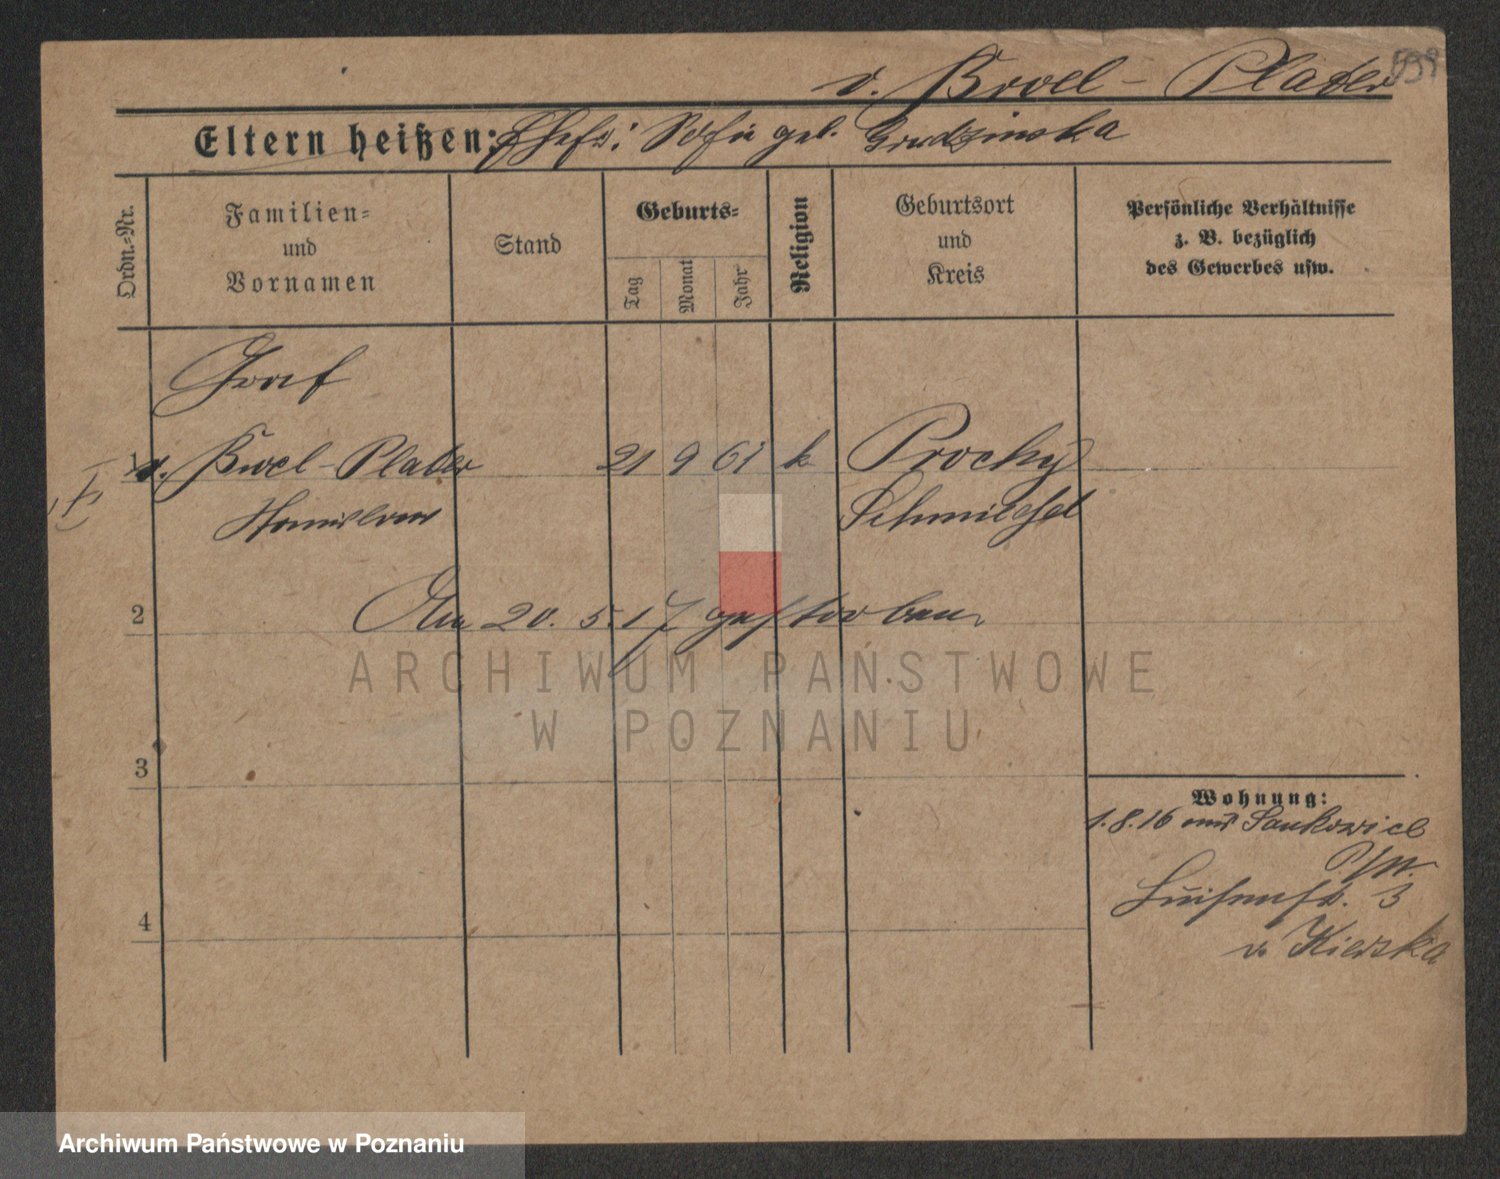 v. Broel-Plater
599
Eltern heißen: Ehefr: Sofie geb. Grudzinska
Ordn.=Nr.
Familien=
und
Vornamen
Stand
Geburts=
Tag
Monat
Jahr
Religion
Geburtsort
und
Kreis
Persönliche Verhältnisse
z. B. bezüglich
des Gewerbes usw.
Graf
v. Broel-Plater 21 9 61 k Prochy
Stanislaus Schmiegel
2
Am 20. 5. 17 gestorben.
ARCHIWUM PAŃSTWOWE
W POZNANIU
3
Wohnung:
1.8.16 aus
4
Luisenstr. 3
v. Kierska
Archiwum Państwowe w Poznaniu